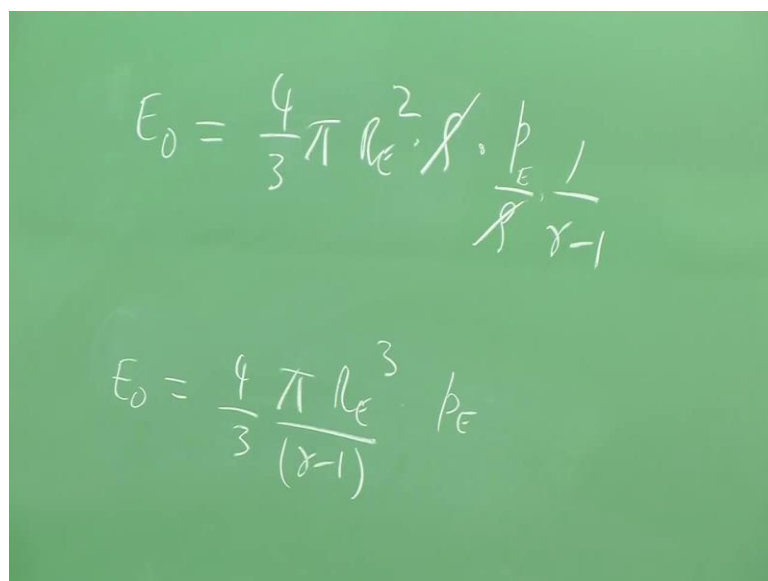 E₀ = 4/3 π R_E² · ρ · p_E/ρ · 1/(γ-1)
E₀ = 4/3 π R_E³/(γ-1) · p_E